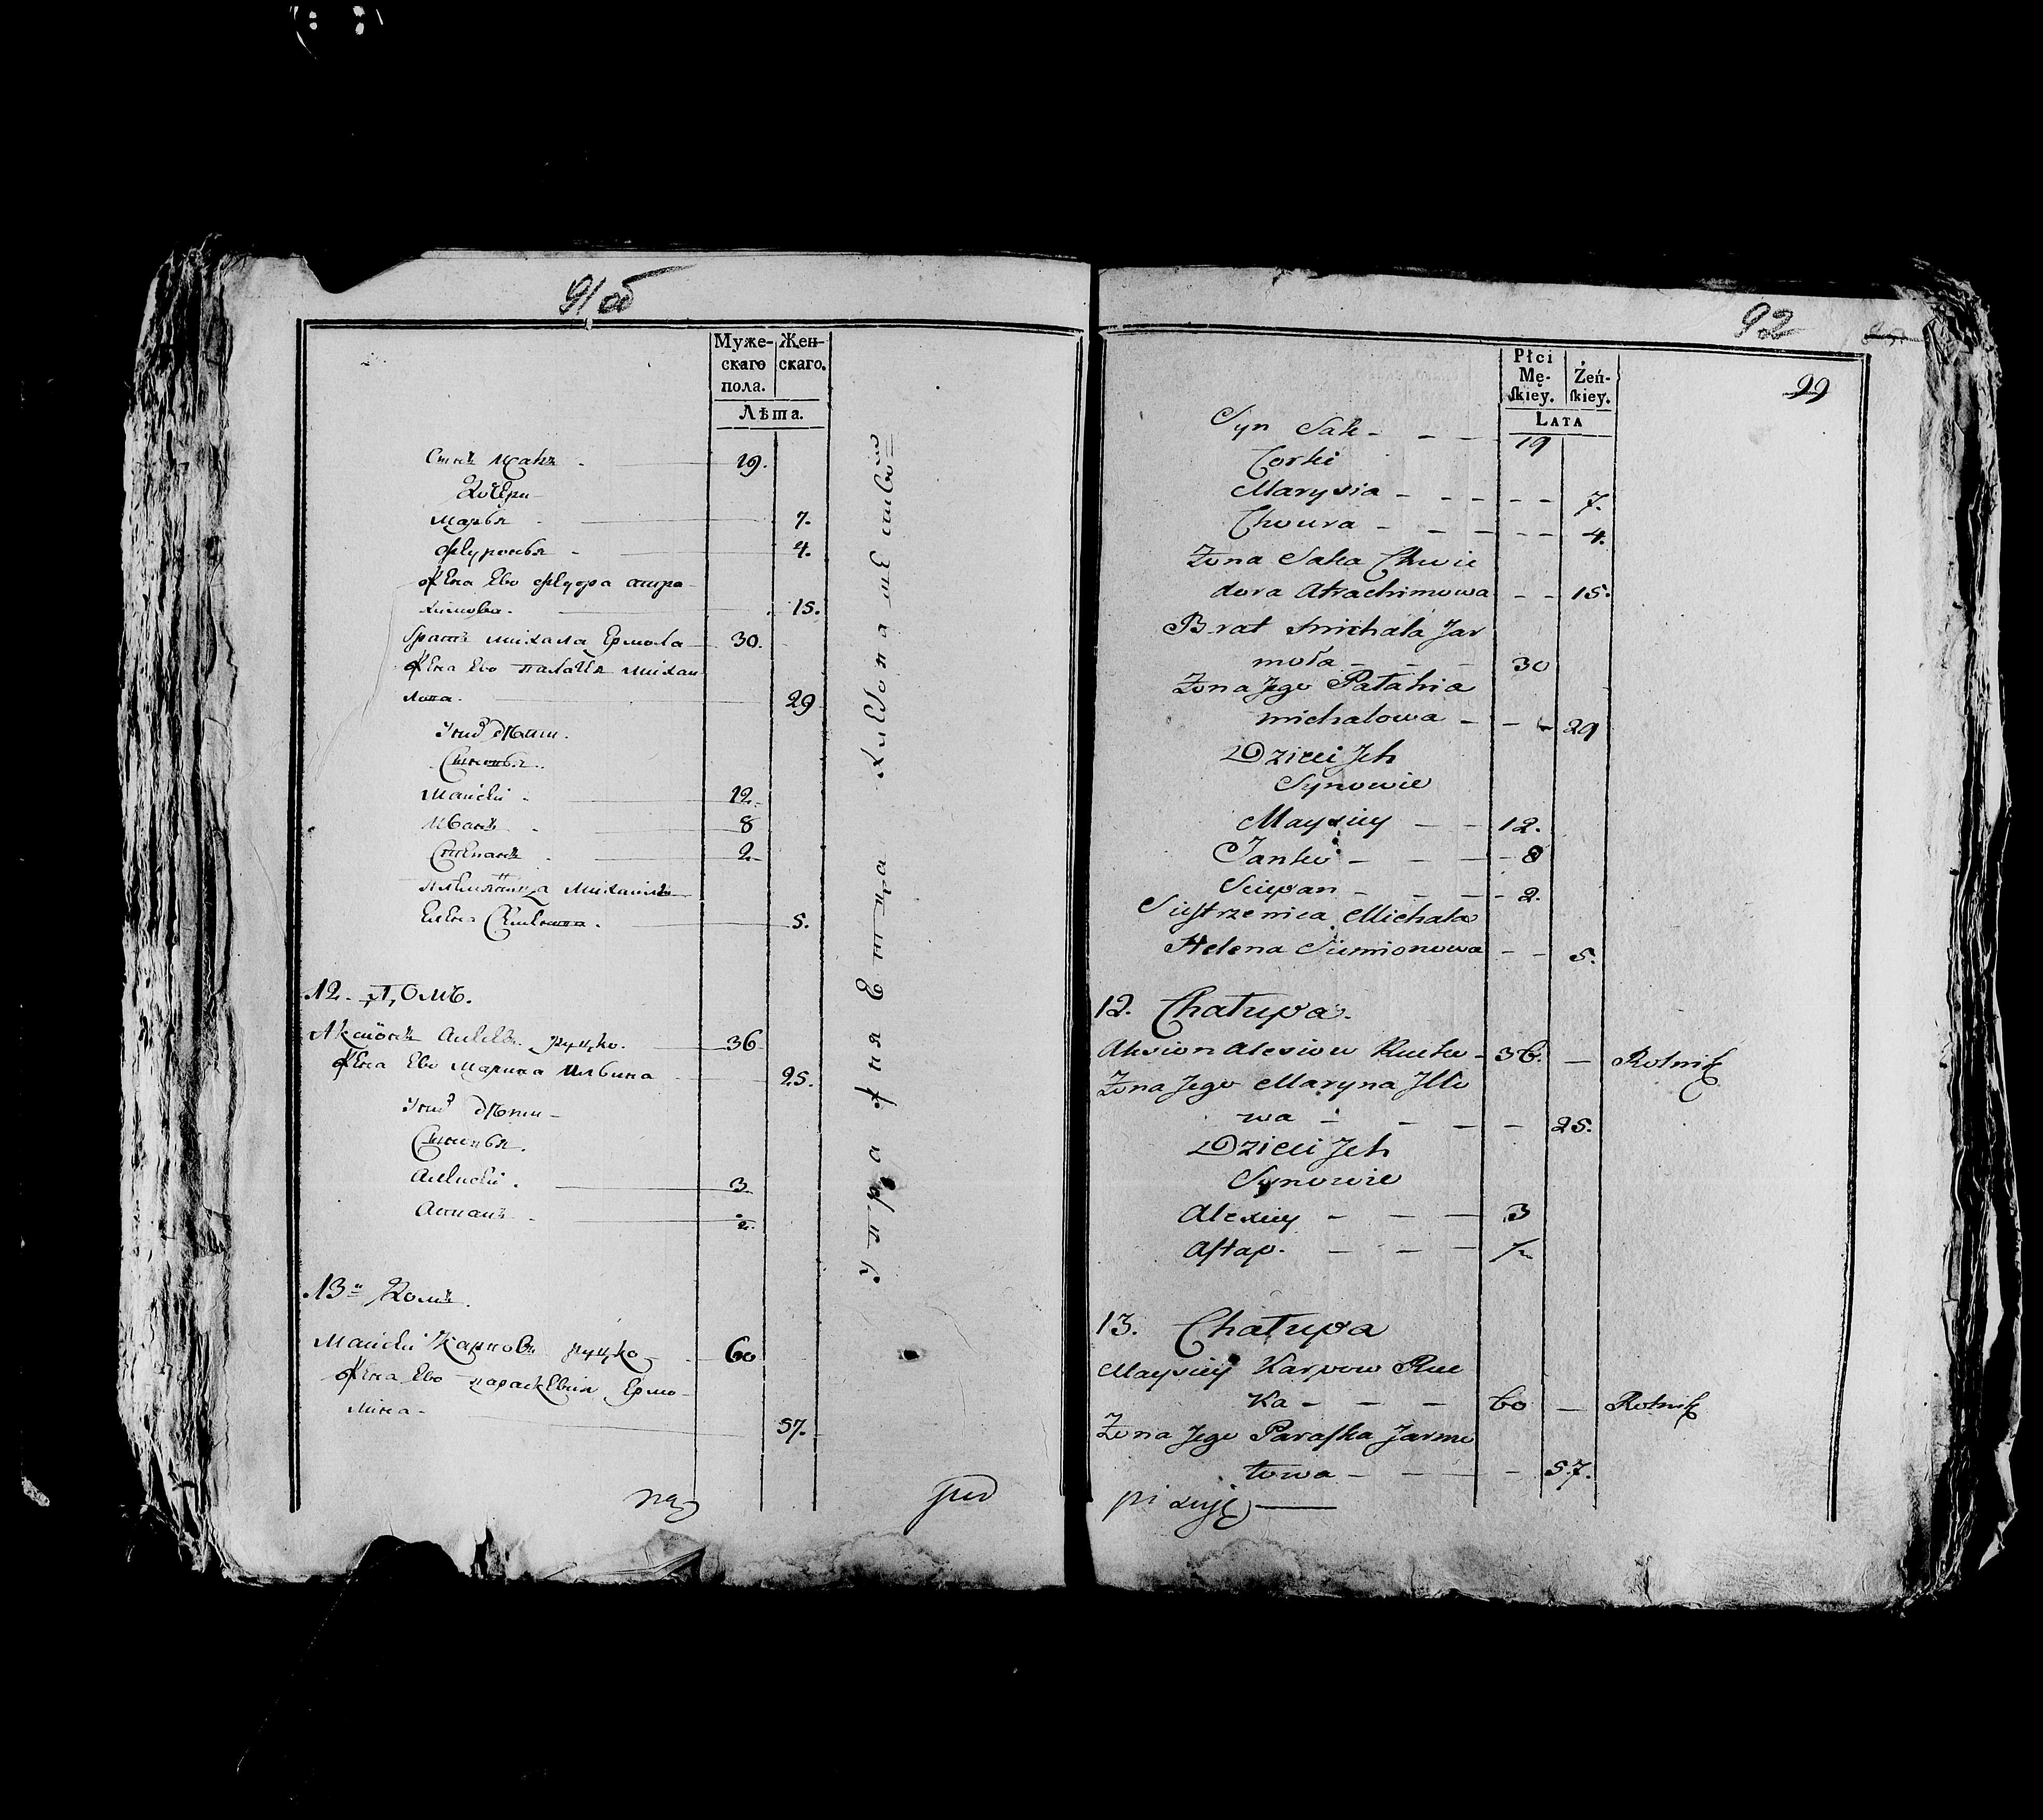 91 об
Муже-
скаго
пола.
Жен-
скаго.
Лѣта.
Сынъ Исакъ - 19.
Дочери
Марья - 7.
4.
Жена Ево Ѳедора
15.
братъ михала Ермола 30.
Жена Ево михаи
лова. 29
У нихъ дѣти.
Сыновья.
12.
Иванъ 8
Степанъ 2
Михаила
Елена 5.
12. Домъ.
Аксіонъ Алексѣ. Руцко. 36
Жена Ево Марина Ильина 25.
У нихъ дѣти
Сыновья.
Алексѣй. 3
Астапъ 1/2.
13й Домъ.
Карповъ Руцко 60
Жена Ево параскевія Ермо-
лина - 57.
Упражняется хлебопашествомъ
92
99
Płci
Mę-
skiey.
Żeń-
skiey.
LATA
Syn Sak - - - 19
Corki
Marysia - - - - - 7.
Chwura - - - - - 4.
Żona Saka Chwie
dora Atrachimowa - - 15.
Brat Michała Jar
moła - - - 30
Żona Jego Pałahia
michałowa - - - 29
Dzieci Jch
Synowie
Maysiey - - 12.
Janko - - - - 8
Sciepan - - - - 2.
Siestrzenica Michała
Helena Siemionowa - - 5.
12. Chałupa.
Aksion Alesiow Rucko - 36. - Rolnik
Żona Jego Maryna Jllo
wa - - - - 25.
Dzieci Jch
Synowie
Alexiey - - - 3
Astap. - - - 1/2
13. Chałupa
Maysiey Karpow Ruc
ka - - - - 60 - Rolnik
Żona Jego Paraska Jarmo
łowa - - - - - 57.